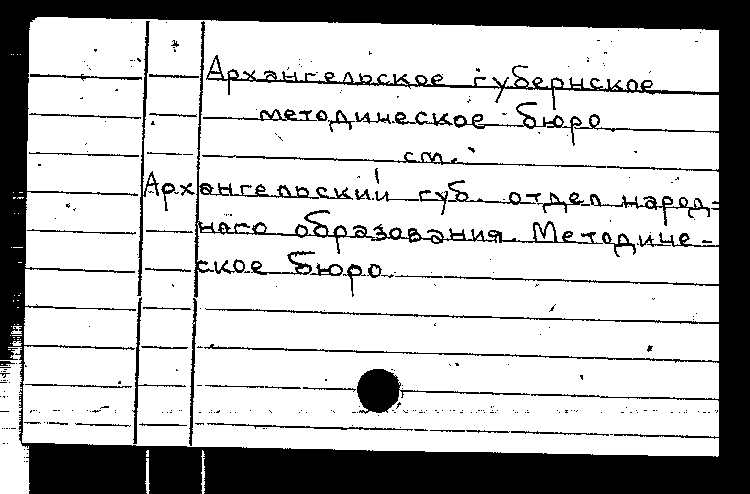 Архангельское губернское
методическое бюро
см.
Архангельский губ. отдел народ-
ного образования. Методиче-
ское бюро.